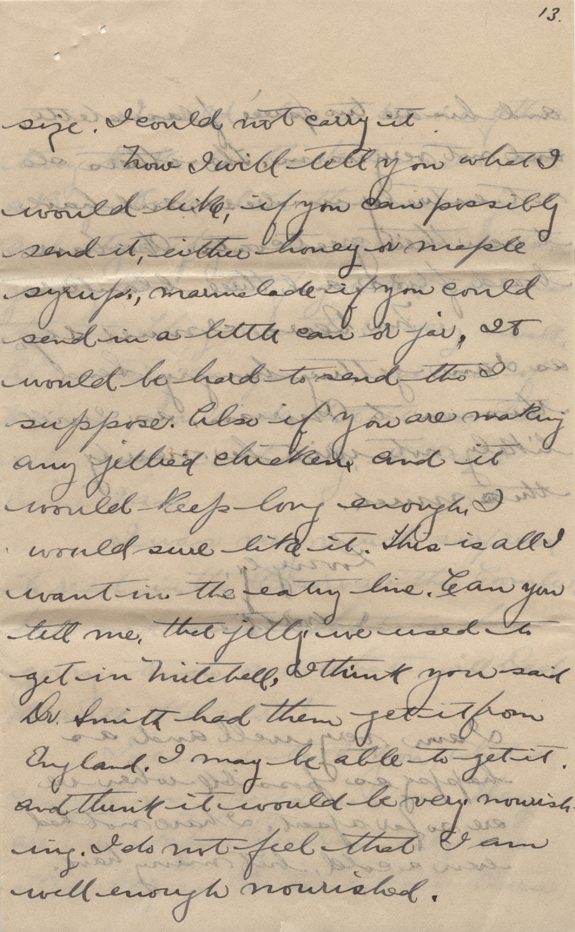 13.
size. I could not carry it.
Now I will tell you what I
would like, if you can possibly
send it, either honey or maple
syrup., marmelade if you could
send in a little can or jar, It
would be hard to send tho I
suppose. Also if you are making
any jellied chicken, and it
would keep long enough, I
would sure like it. This is all I
want in the eating line. Can you
tell me, that jelly we used to
get in Mitchell, I think you said
Dr. Smith had them get it from
England. I may be able to get it.
and think it would be very nourish-
ing. I do not feel that I am
well enough nourished.